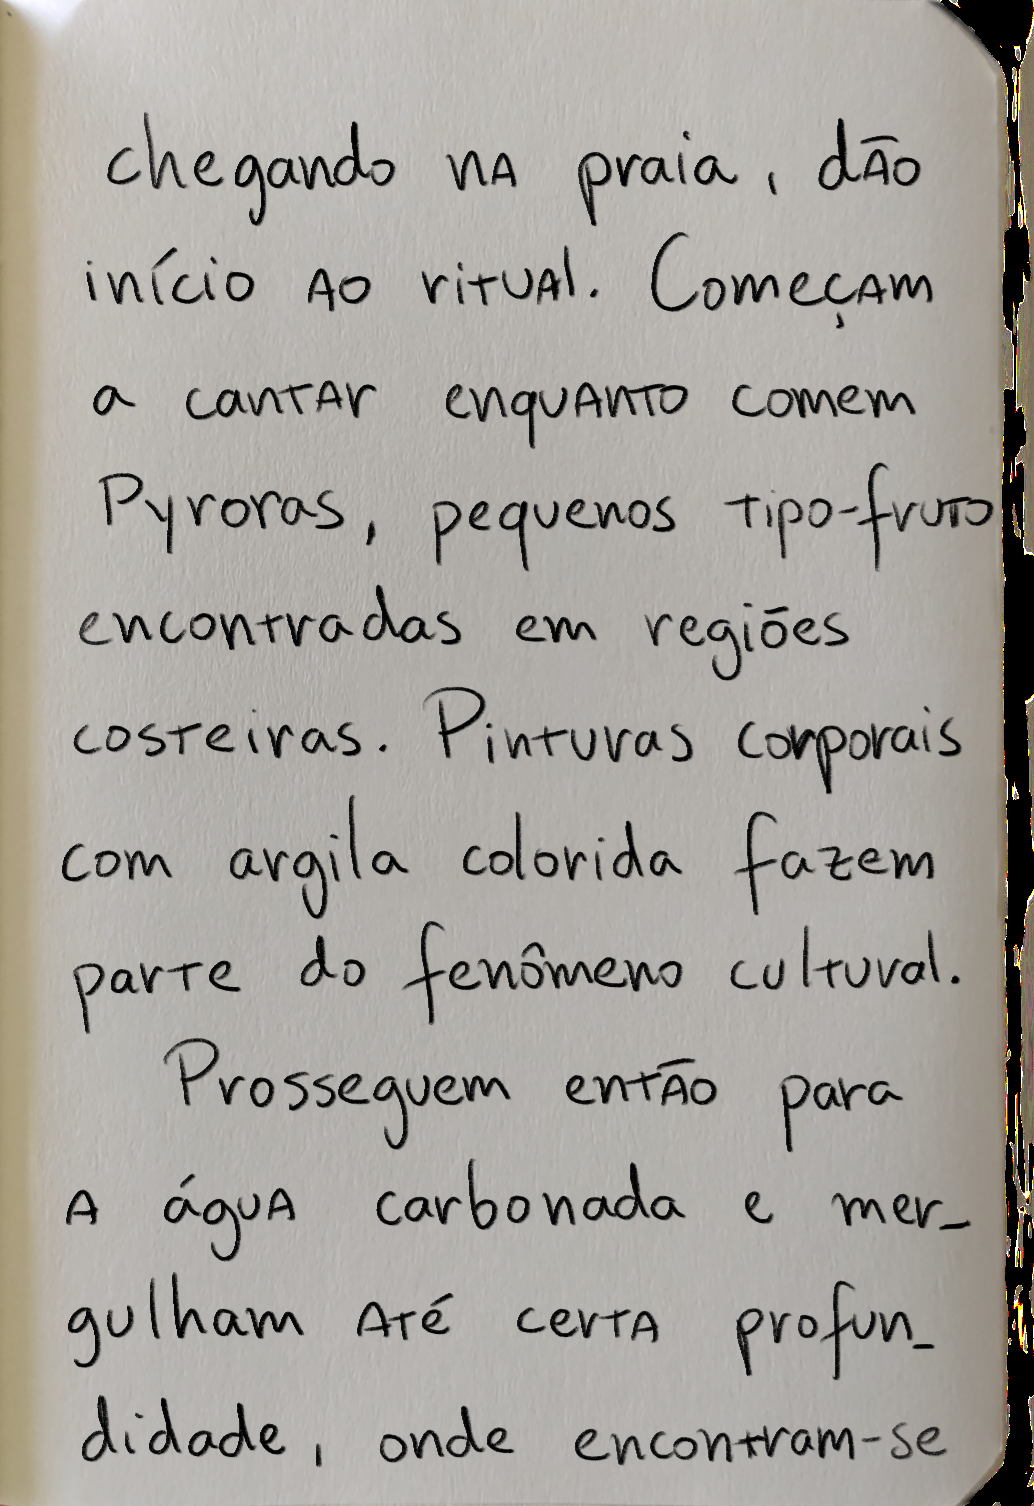 chegando na praia, dão
início ao ritual. Começam
a cantar enquanto comem
Pyroras, pequenos tipo-fruto
encontradas em regiões
costeiras. Pinturas corporais
com argila colorida fazem
parte do fenômeno cultural.
Prosseguem então para
a água carbonada e mer_
gulham até certa profun_
didade, onde encontram-se